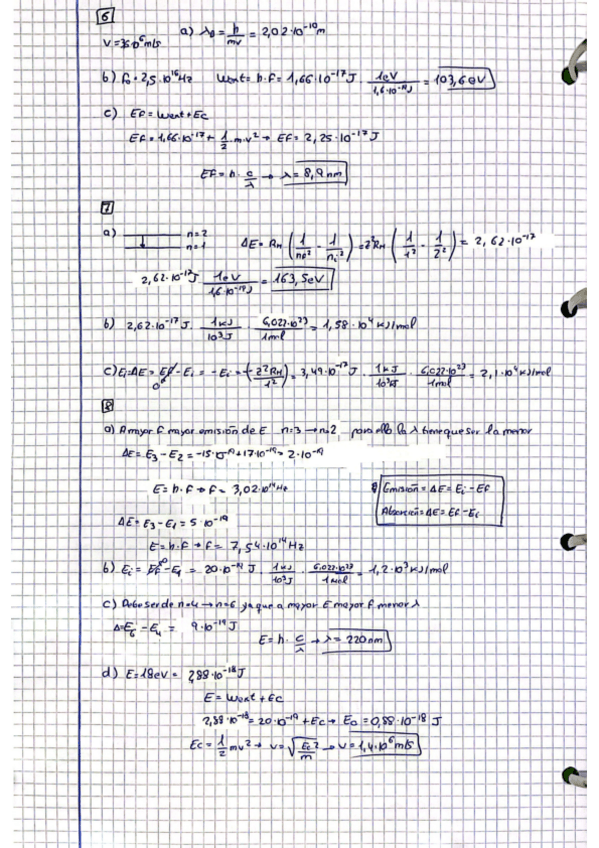 6
V=3,6·10⁶m/s   a) λ₀ = h/mv = 2,02·10⁻¹⁰m
b) f₀ = 2,5·10¹⁶Hz   Wext = h·f = 1,66·10⁻¹⁷J · 1eV/1,6·10⁻¹⁹J = 103,6eV
c) EF = Wext + Ec
EF = 1,66·10⁻¹⁷ + 1/2 m·v² → EF = 2,25·10⁻¹⁷J
EF = h · c/λ → λ = 8,9nm
7
a) n=2 n=1   ΔE = RH (1/nf² - 1/ni²) = Z²RH (1/1² - 1/2²) = 2,62·10⁻¹⁷
2,62·10⁻¹⁷J · 1eV/1,6·10⁻¹⁹J = 163,5eV
b) 2,62·10⁻¹⁷J · 1KJ/10³J · 6,022·10²³/1mol = 1,58·10⁴ KJ/mol
c) Ei=ΔE = Ef⁰ - Ei = -Ei = -(-Z²RH/1²) = 3,49·10⁻¹⁷J · 1KJ/10³KJ · 6,022·10²³/1mol = 2,1·10⁴KJ/mol
8
a) A mayor f mayor emisión de E n=3 → n=2 para ello la λ tiene que ser la menor
ΔE = E3 - E2 = -15·10⁻¹⁹+17·10⁻¹⁹ = 2·10⁻¹⁹
E = h·f → f = 3,02·10¹⁴Hz
Emisión = ΔE = Ei - Ef
Absorción = ΔE = Ef - Ei
ΔE = E3 - E1 = 5·10⁻¹⁹
E = h·f → f = 7,54·10¹⁴Hz
b) Ei = Ef⁰ - E1 = 20·10⁻¹⁹J · 1KJ/10³J · 6,022·10²³/1mol = 1,2·10³KJ/mol
c) Debe ser de n=4 → n=6 ya que a mayor E mayor f menor λ
ΔE = E6 - E4 = 9·10⁻¹⁹J
E = h · c/λ → λ = 220nm
d) E = 18eV = 2,88·10⁻¹⁸J
E = Wext + Ec
2,88·10⁻¹⁸ = 20·10⁻¹⁹ + Ec → Ec = 0,88·10⁻¹⁸ J
Ec = 1/2 mv² → v = √Ec2/m → v = 1,4·10⁶m/s